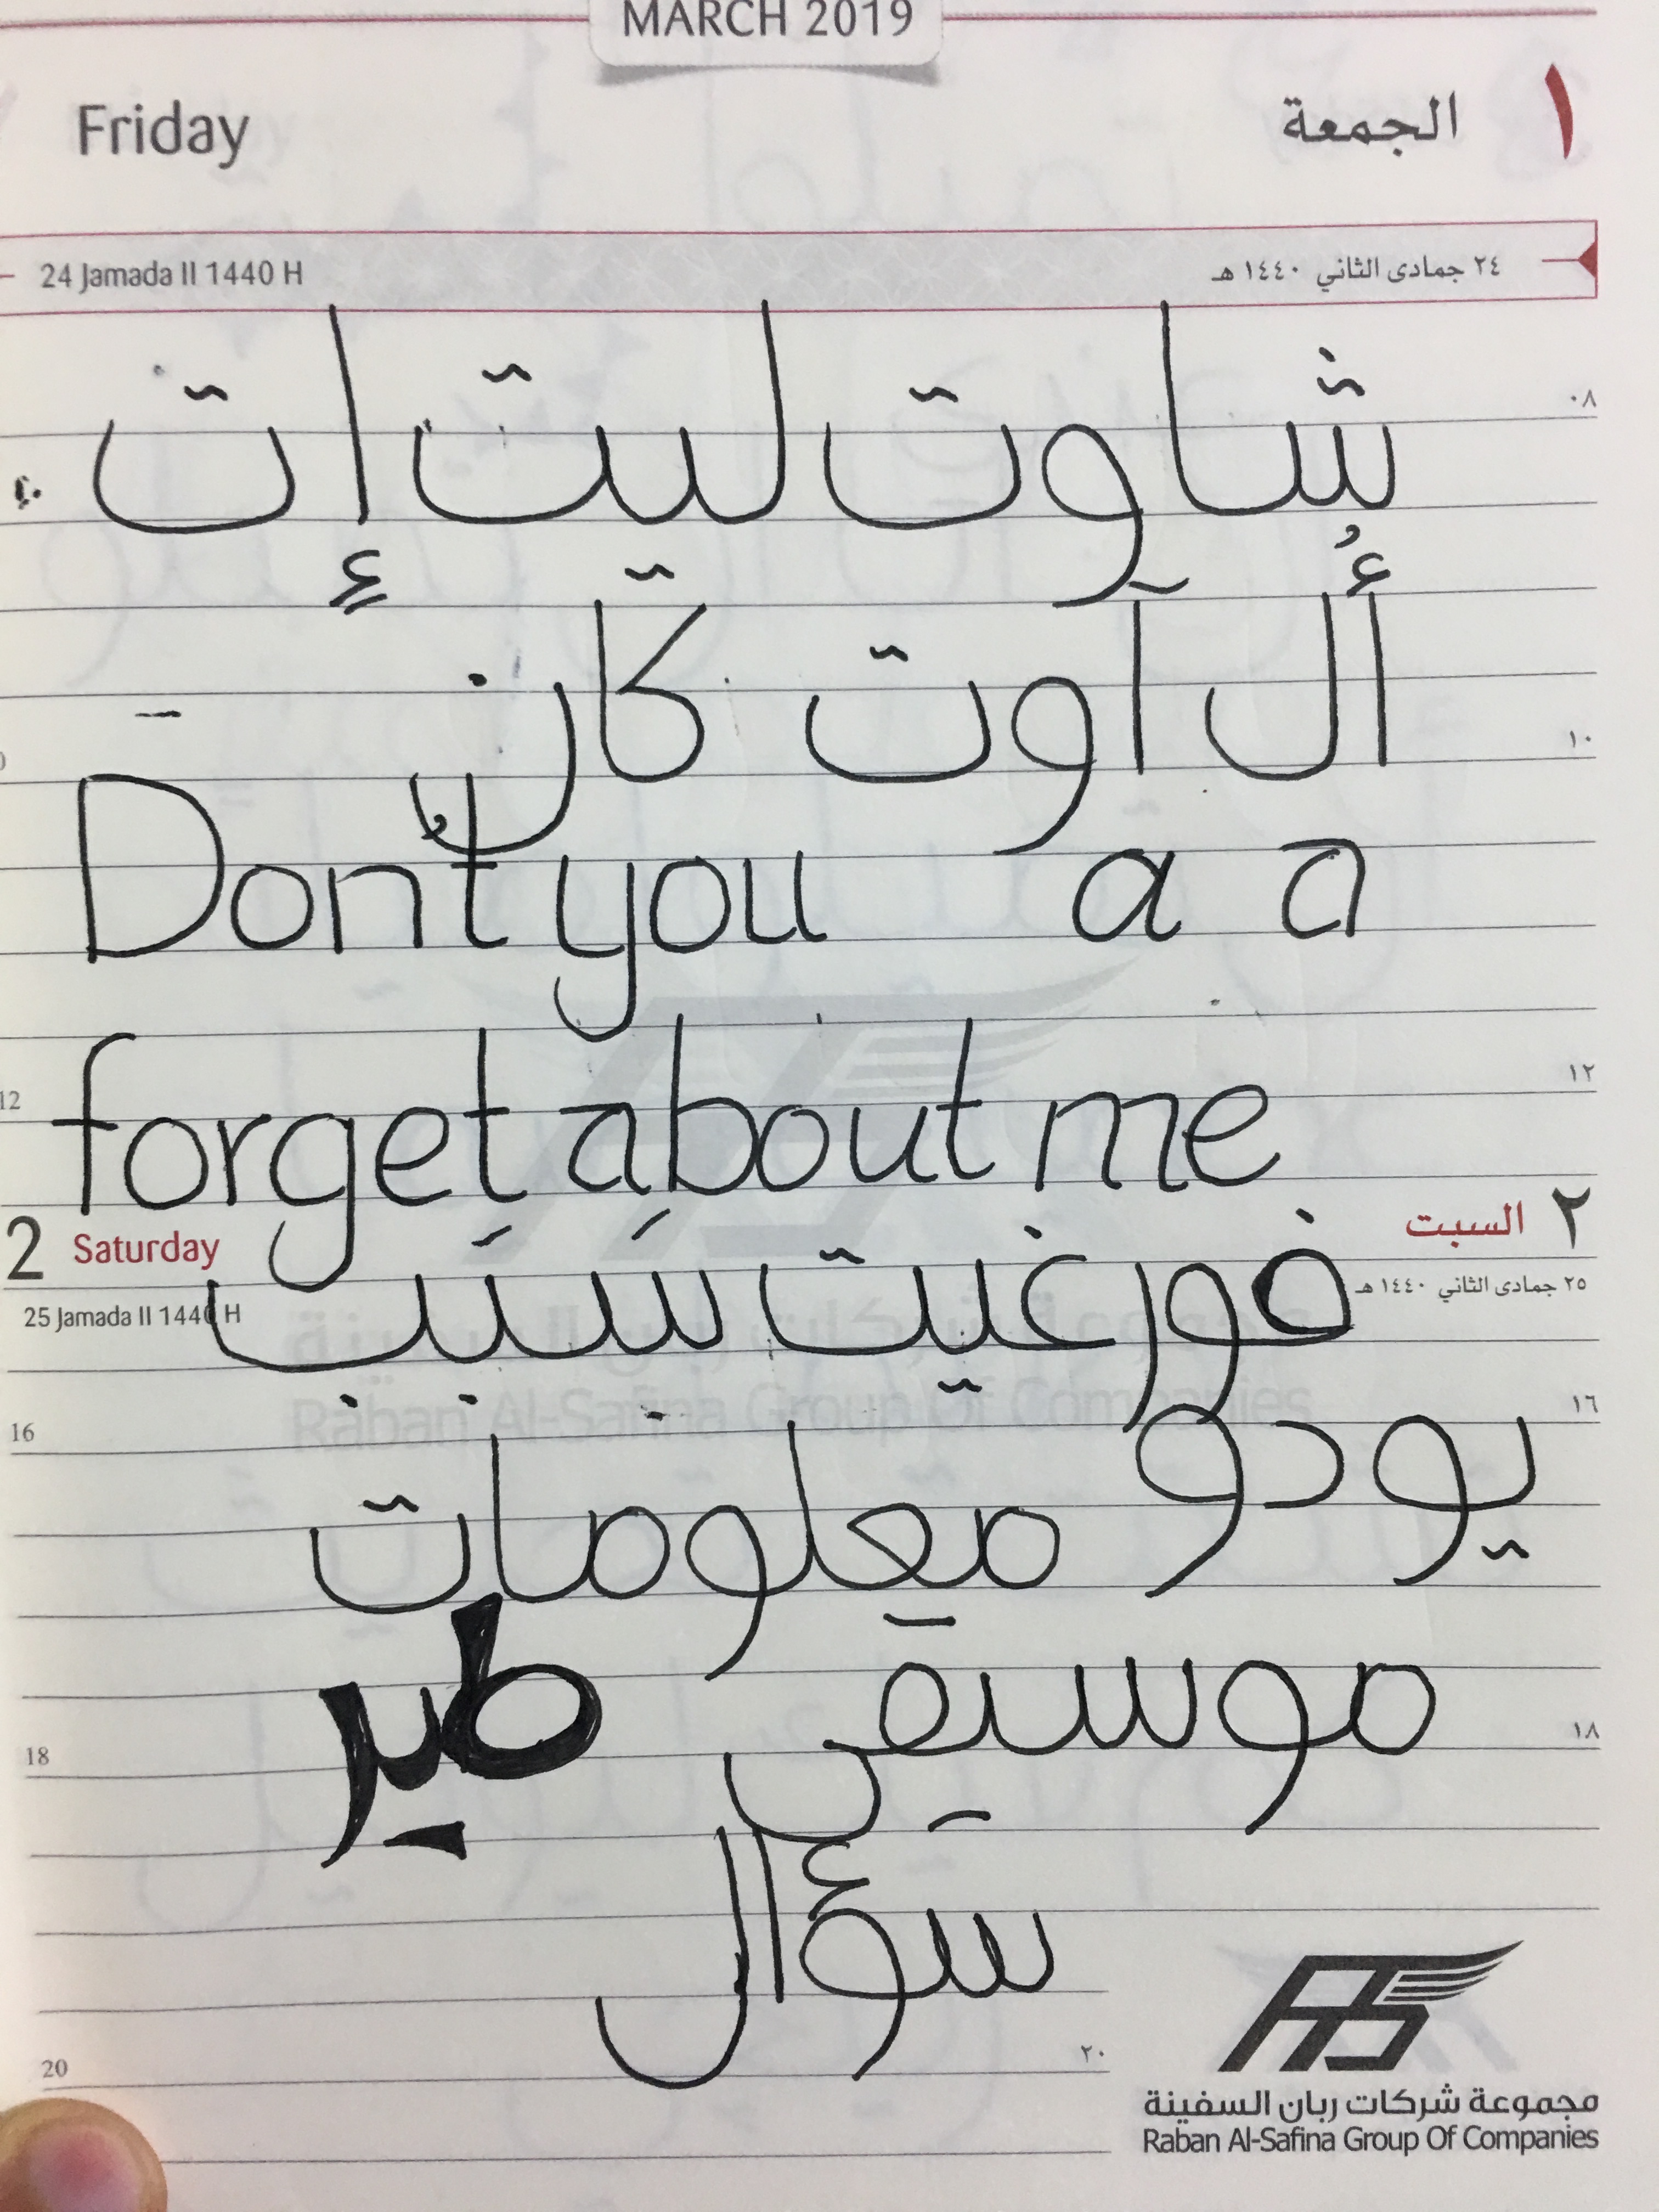 MARCH 2019
Friday الجمعة ١
24 Jamada II 1440 H ٢٤ جمادى الثاني ١٤٤٠ هـ
شاوت ليت إت
٠٨
أُل آوت كان
١٠
Don't you a a
forget about me
12 ١٢
2 Saturday السبت ٢
25 Jamada II 1440 H ٢٥ جمادى الثاني ١٤٤٠ هـ
فورغيت سَبَب
16 ١٦
يودو معلومات
موسيقى طير
18 ١٨
سؤال
20 ٢٠
مجموعة شركات ربان السفينة
Raban Al-Safina Group Of Companies